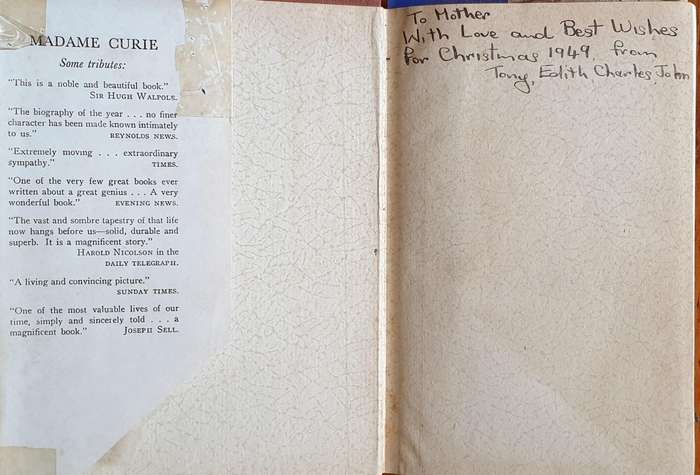 MADAME CURIE
Some tributes:
"This is a noble and beautiful book."
SIR HUGH WALPOLE.
"The biography of the year . . . no finer
character has been made known intimately
to us." REYNOLDS NEWS.
"Extremely moving . . . extraordinary
sympathy." TIMES.
"One of the very few great books ever
written about a great genius . . . A very
wonderful book." EVENING NEWS.
"The vast and sombre tapestry of that life
now hangs before us—solid, durable and
superb. It is a magnificent story."
HAROLD NICOLSON in the
DAILY TELEGRAPH.
"A living and convincing picture."
SUNDAY TIMES.
"One of the most valuable lives of our
time, simply and sincerely told . . . a
magnificent book." JOSEPH SELL.
To Mother
With Love and Best Wishes
for Christmas 1949, from
Tony, Edith Charles, John